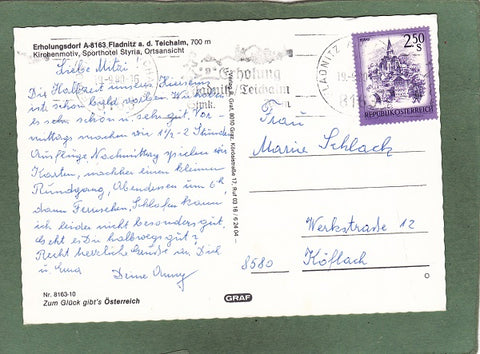 Erholungsdorf A-8163 Fladnitz a. d. Teichalm, 700 m
Kirchenmotiv, Sporthotel Styria, Ortsansicht
Liebe Mitzi!
Die Halbzeit unseres
ist schon bald vorbei. Wir haben
es sehr schön u. sehr gut. Vor-
mittags machen wir 1½-2 Stunden
Ausflüge Nachmittag spielen wir
Karten, nachher einen kleinen
Rundgang, Abendessen um 6h
Dann Fernsehen. Schlafen kann
ich leider nicht besonders gut,
Geht es Dir halbwegs gut?
Recht herzliche Grüße an Dich
u.
Deine Anny
Nr. 8163-10
Zum Glück gibt's Österreich
Verlag A. Graf, 8010 Graz,
GRAF
2.50
S
REPUBLIK ÖSTERREICH
Frau
Marie Schlack
Werkstraße 12
8580 Köflach